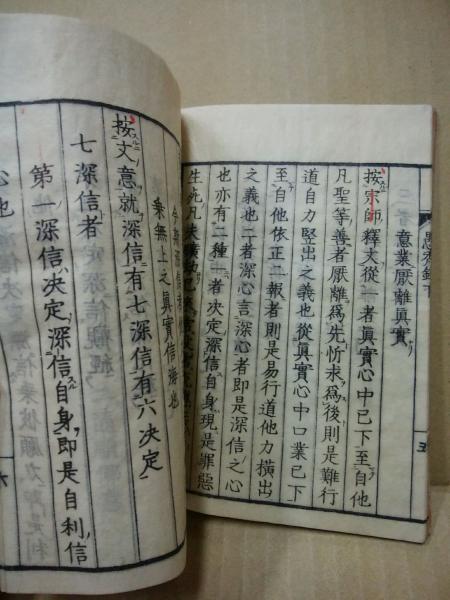 意業厭離眞實
按宗師釋文從一者眞實心中已下至自他
凡聖等善者厭離爲先忻求爲後則是難行
道自力竪出之義也從眞實心中口業已下
至自他依正二報者則是易行道他力横出
之義也二者深心言深心者即是深信之心
也亦有二種一者決定深信自身現是罪惡
生死凡夫
愚禿鈔下
五
今斯深信者
乘無上之眞實信海也
按文意就深信有七深信有六決定
七深信者
第一深信決定深信自身即是自利信
心也
六